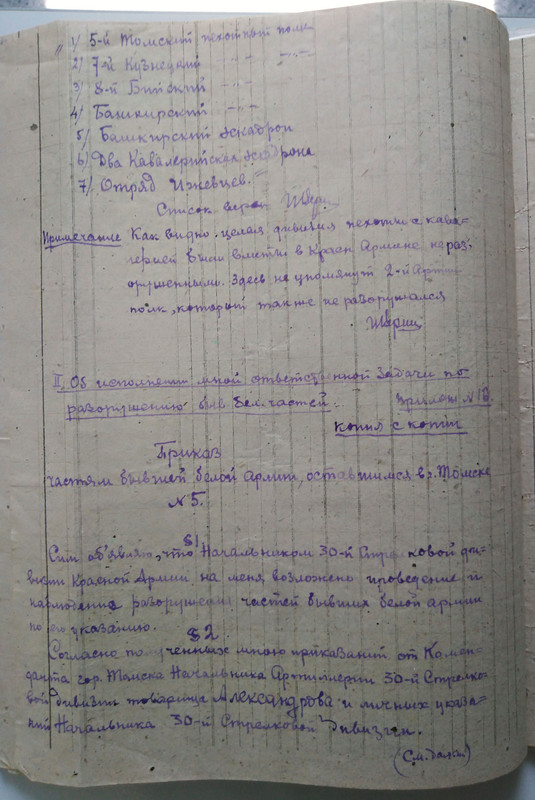 1) 5-й Томский пехотный полк
2) 7-й Кузнецкий -"- -"-
3) 8-й Бийский -"-
4) Башкирский -"-
5) Башкирский Эскадрон
6) Два Кавалерийских эскадрона
7) Отряд Ижевцев.
Список верен
Примечание Как видно целая дивизия пехоты с кава=
лерией были влиты в Красн Армию нераз
оруженными. Здесь не упомянут 2-й Артил
полк, который также не разоружался
II. Об исполнении мной ответственной задачи по
разоружению быв. бел. частей. Прилож N 12.
Копия с копии
Приказ
частям бывшей белой армии, оставшимся в г. Томске
N 5.
§ 1
Сим объявляю, что Начальником 30-й Стрелковой ди=
визии Красной Армии на меня возложено проведение и
наблюдение разоружения частей бывших белой армии
по его указанию.
§ 2
Согласно полученных мною приказаний от Комен=
данта гор. Томска Начальника Артиллерии 30-й Стрелко
вой дивизии товарища Александрова и личных указа=
ний Начальника 30-й Стрелковой Дивизии.
(См. далее)